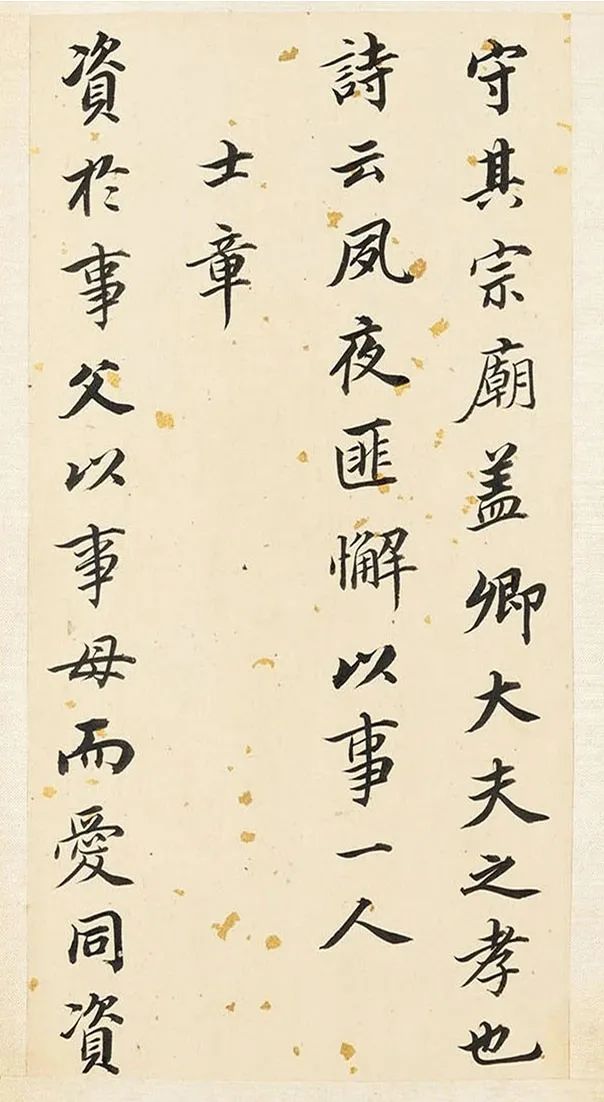 守其宗廟盖卿大夫之孝也
詩云夙夜匪懈以事一人
士章
資於事父以事母而愛同資